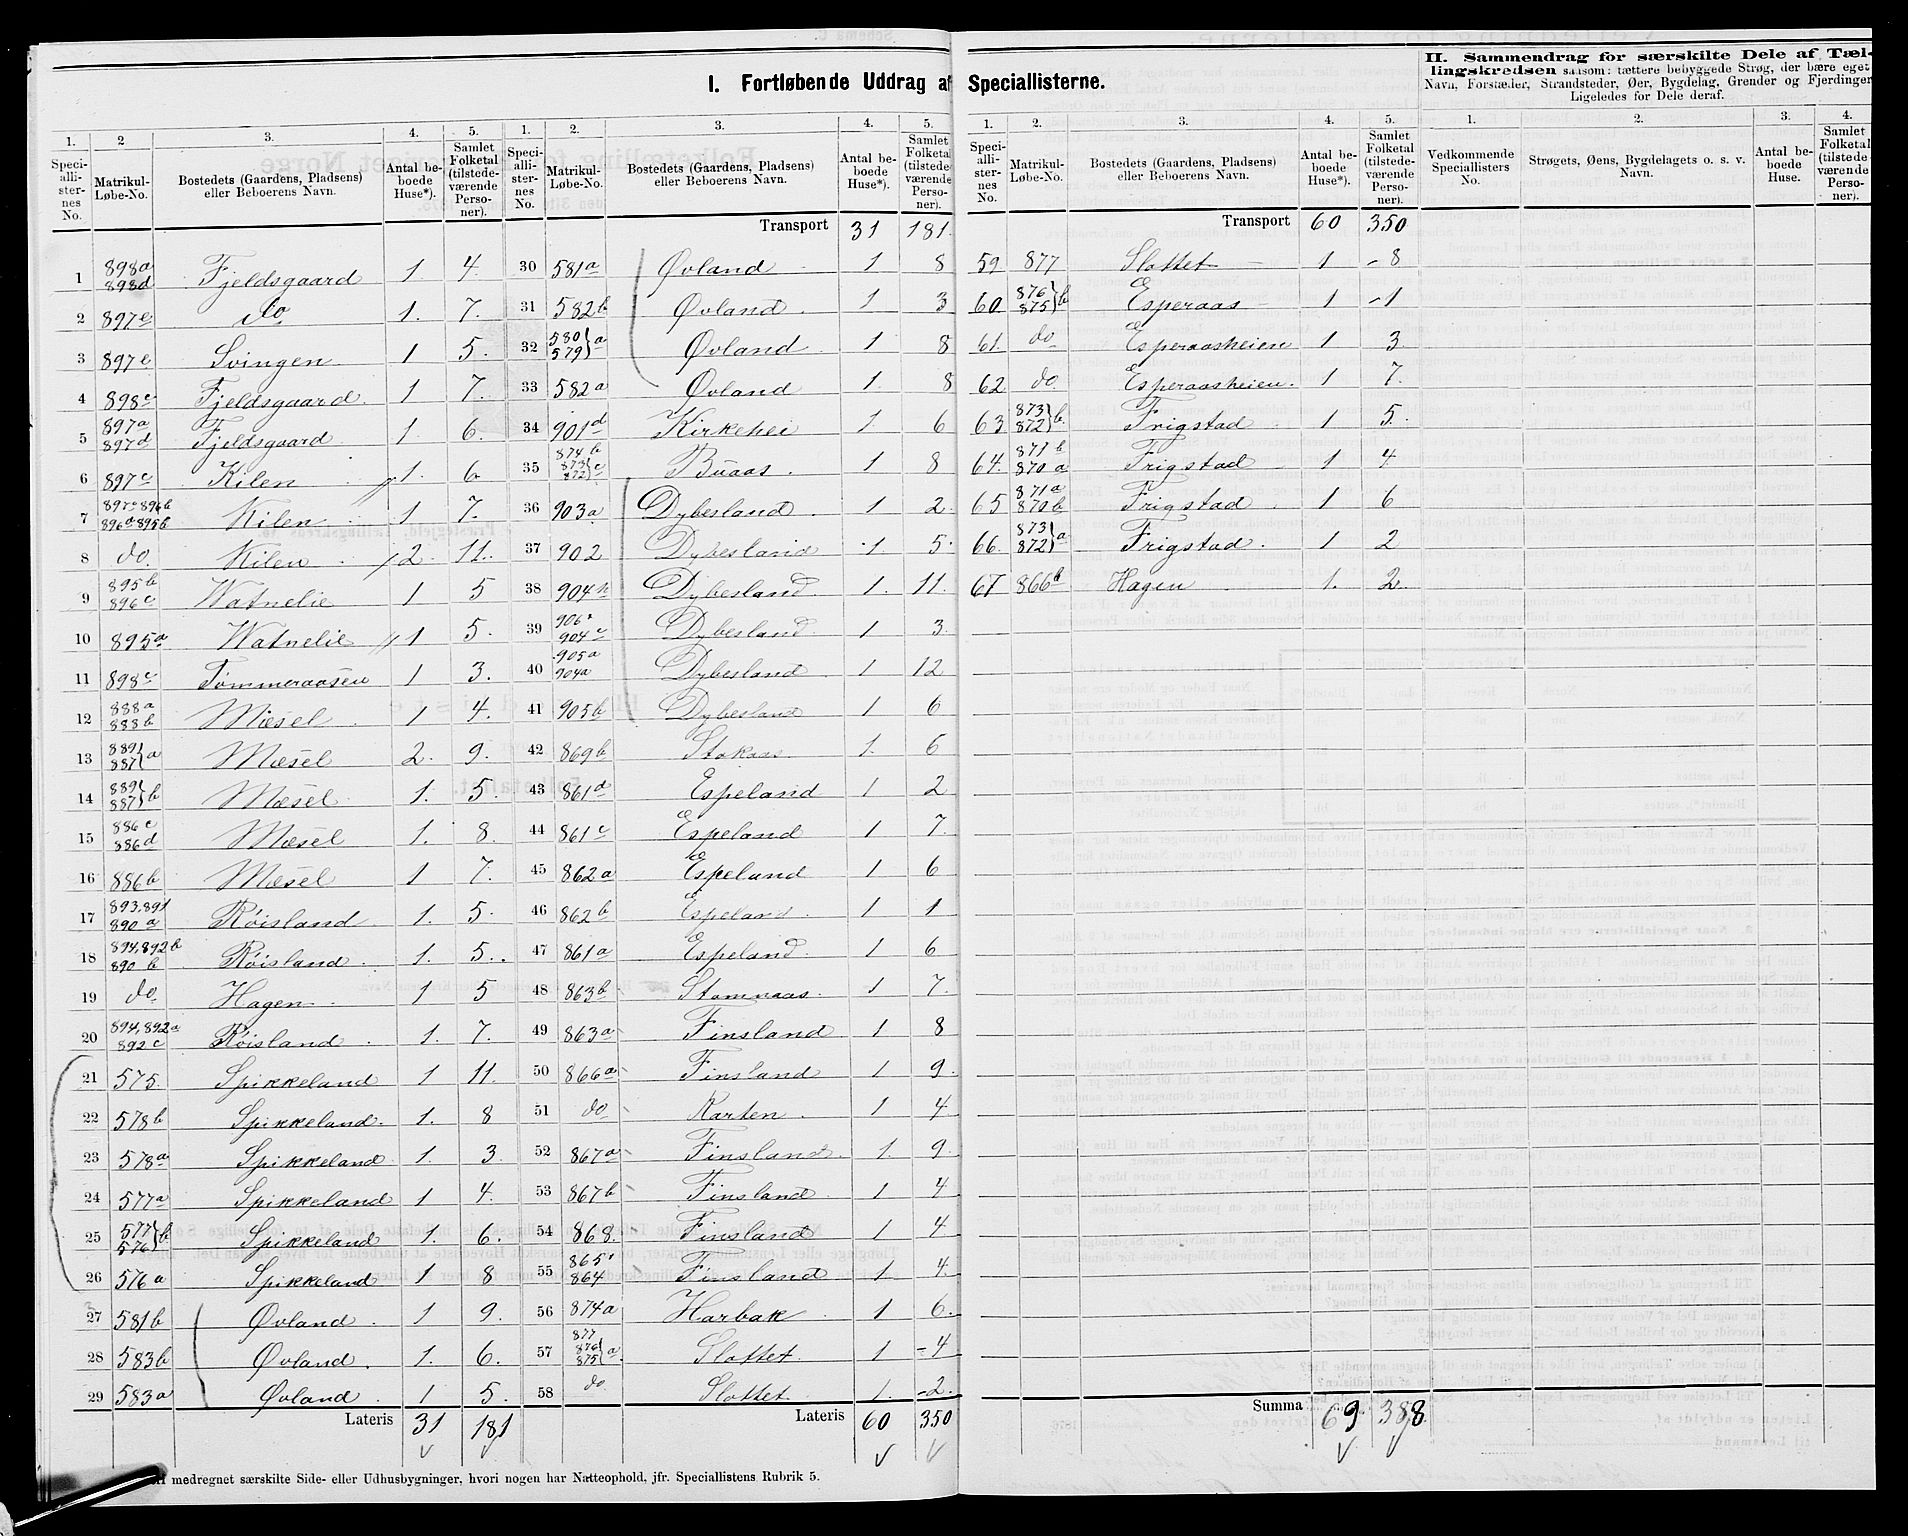 I. Fortløbende Uddrag af Speciallisterne.
II. Sammendrag for særskilte Dele af Tæl-
lingskredsen saasom: tættere bebyggede Strøg, der bære eget
Navn, Forstæder, Strandsteder, Øer, Bygdelag, Grender og Fjerdinger
Ligeledes for Dele deraf.
1. 2 3. 4. 5.
Speci-alli-ster-nes No. Matrikul-Løbe-No. Bostedets (Gaardens, Pladsens) eller Beboerens Navn. Antal be-boede Huse*). Samlet Folketal (tilstede-værende Perso-ner).
1 898a 898d Fjeldsgaard 1. 4.
2 897e do 1. 7.
3 897e Svingen 1 5.
4 898c Fjeldsgaard. 1 7.
5 897a 897d Fjeldsgaard 1. 6.
6 897c Kilen 1. 6
7 897c 896b 896a 895b Kilen 1 7.
8 do. Kilen 2. 11.
9 895b 896c Watnelie 1 5
10 895a Watnelie 1 5.
11 898c Tømmeraasen 1 3.
12 888a 888b Mæsel 1 4.
13 889 887 a Mæsel 2. 9.
14 889 887 b Mæsel 1. 5.
15 886c 886d Mæsel 1. 8.
16 886b Mæsel 1 7.
17 893,891 890a Røisland 1. 5.
18 894,892b 890b Røisland. 1. 5.
19 do Hagen 1 5
20 894,892a 892c Røisland 1. 7.
21 575. Spikkeland 1 11.
22 578b Spikkeland. 1. 8
23 578a Spikkeland 1. 3.
24 577a Spikkeland 1 4.
25 577 576 b Spikkeland 1. 6.
26 576a Spikkeland 1 8
27 581b Øvland 1 9.
28 583b Øvland. 1. 6.
29 583a Øvland 1 5.
Lateris 31 181
1. 2. 3. 4. 5.
Speci-alli-ster-nes No. Matrikul-Løbe-No. Bostedets (Gaardens, Pladsens) eller Beboerens Navn. Antal be-boede Huse*). Samlet Folketal (tilstede-værende Perso-ner).
Transport 31 181.
30 581a Øvland 1 8
31 582b Øvland. 1 3
32 580 579 a Øvland 1 8
33 582a Øvland 1. 8
34 901d Kirkehei 1 6
35 874b 873 872 c Buaas. 1 8
36 903a Dybesland. 1 2.
37 902 Dybesland 1. 5.
38 904 Dybesland 1. 11.
39 906 904c Dybesland 1 3.
40 905a 904a Dybesland 1 12
41 905b Dybesland 1 6
42 869b Stokaas 1. 6
43 861d Espeland 1 2
44 861c Espeland 1 7.
45 862a Espeland 1 6
46 862b Espeland. 1 1
47 861a Espeland. 1 6
48 863b Stomnaas. 1 7.
49 863a Finsland 1 8
50 866a Finsland 1 9.
51 do Karten. 1 4
52 867a Finsland. 1. 9.
53 867b Finsland 1 4
54 868. Finsland 1 4
55 865 864 Finsland 1 4.
56 874a Harbak 1 6.
57 877 876 875 a Slottet. 1 4
58 do Slottet 1. 2.
Lateris 60 350
1. 2. 3. 4. 5.
Speci-alli-ster-nes No. Matrikul-Løbe-No. Bostedets (Gaardens, Pladsens) eller Beboerens Navn. Antal be-boede Huse*). Samlet Folketal (tilstede-værende Perso-ner).
Transport 60 350
59 877 Slottet 1 8
60 876 875 b Esperaas 1 1
61. do Esperaasheien 1 3.
62 do. Esperaasheien. 1 7.
63 873 872 b. Frigstad 1 5.
64. 871b 870a Frigstad 1 4
65 871a 870b Frigstad 1 6
66. 873 872 a Frigstad. 1 2
67 866 Hagen 1. 2.
Summa 69 388
1. 2. 3. 4.
Vedkommende Speciallisters No. Strøgets, Øens, Bygdelagets o. s. v. Navn. Antal beboede Huse. Samlet Folketal (tilstede-værende Perso-ner).
medregnet særskilte Side- eller Udhusbygninger, hvori nogen har Natteophold, jfr. Speciallistens Rubrik 5.